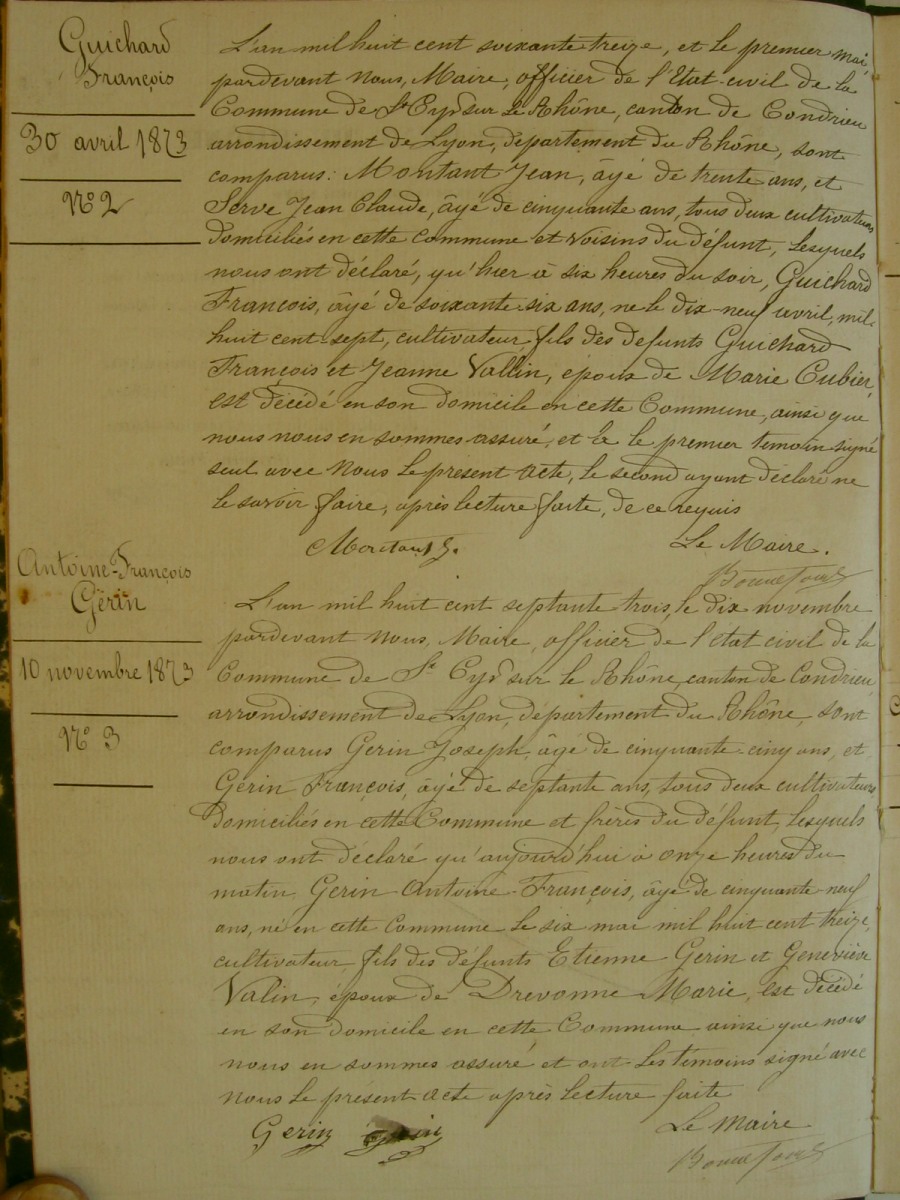 Guichard
François
30 avril 1873
N° 2
L'an mil huit cent soixante treize, et le premier mai,
pardevant nous, Maire, officier de l'Etat-civil de la
Commune de St Cyr sur Le Rhône, canton de Condrieu
arrondissement de Lyon, département du Rhône, sont
comparus: Montant Jean, âgé de trente ans, et
Serve Jean Claude, âgé de cinquante ans, tous deux cultivateurs
domiciliés en cette Commune et voisins du défunt, lesquels
nous ont déclaré, qu'hier à six heures du soir, Guichard
François, âgé de soixante-six ans, né le dix-neuf avril, mil-
huit cent-sept, cultivateur fils des defunts Guichard
François et Jeanne Vallin, époux de Marie Cubier,
est décédé en son domicile en cette Commune, ainsi que
nous nous en sommes assuré, et a le premier temoin signé
seul avec Nous le présent acte, le second ayant déclaré ne
le savoir faire, après lecture faite, de ce requis
Le Maire.
Antoine-François
Gérin
10 novembre 1873
N° 3
L'an mil huit cent septante trois, le dix novembre
pardevant nous, Maire, officier de l'état civil de la
Commune de St Cyr sur le Rhône, canton de Condrieu,
arrondissement de Lyon, département du Rhône, sont
comparus Gerin Joseph, âgé de cinquante-cinq ans, et
Gerin François, âgé de septante ans, tous deux cultivateurs
domiciliés en cette Commune et frères du défunt, lesquels
nous ont déclaré qu'aujourd'hui à onze heures du
matin Gerin Antoine François, âgé de cinquante-neuf
ans, né en cette Commune le six mai mil huit cent treize,
cultivateur, fils des défunts Etienne Gerin et Geneviève
Valin, époux de Drevonne Marie, est décédé
en son domicile en cette Commune ainsi que nous
nous en sommes assuré et ont les temoins signé avec
nous le présent acte après lecture faite
Gerin Gerin
Le Maire